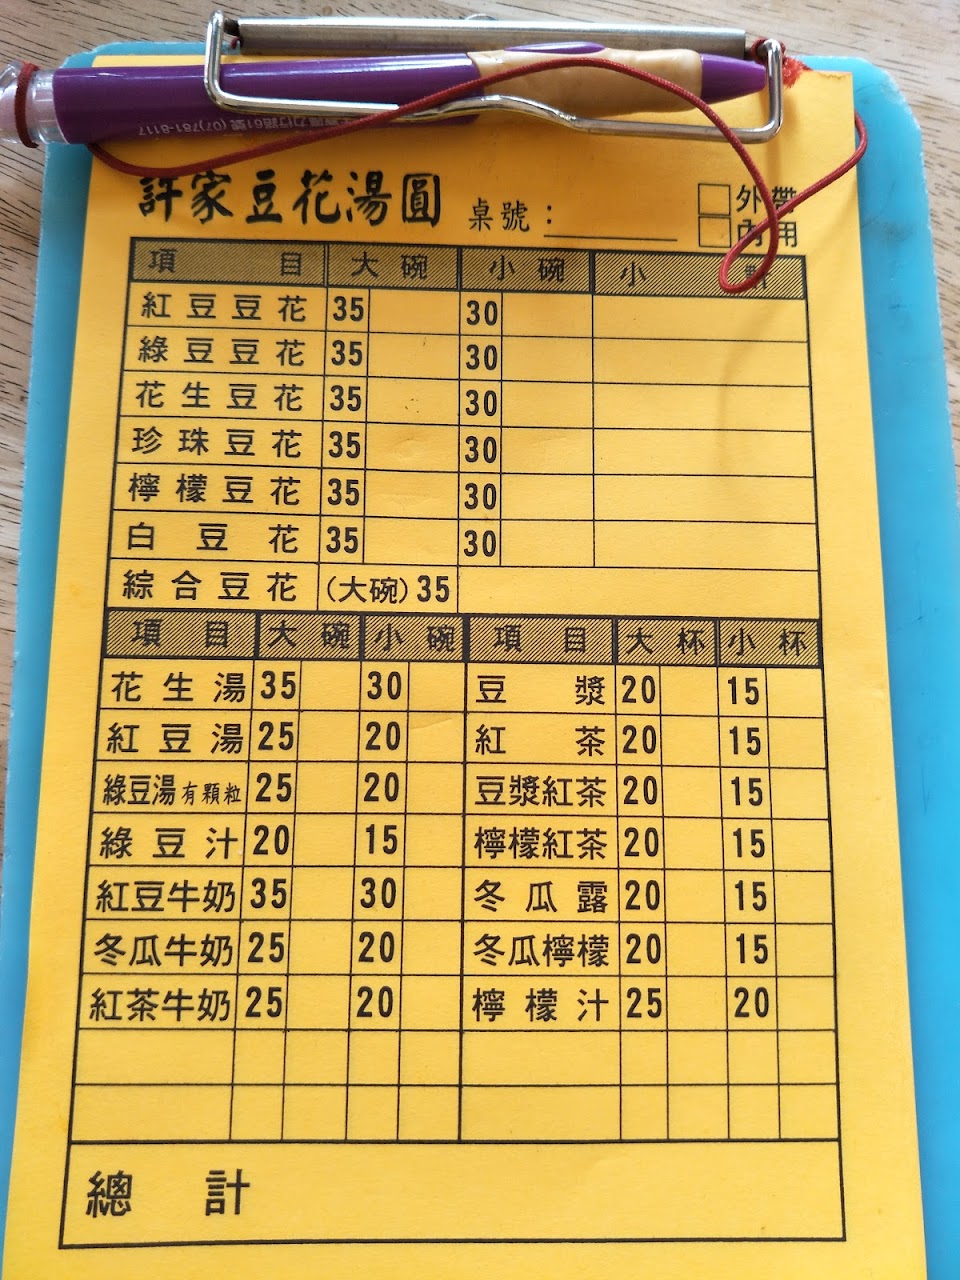 力行路61號 (07)781-8117
許家豆花湯圓 桌號： 外帶
內用
項目 大碗 小碗 小計
紅豆豆花 35 30
綠豆豆花 35 30
花生豆花 35 30
珍珠豆花 35 30
檸檬豆花 35 30
白豆花 35 30
綜合豆花 (大碗) 35
項目 大碗 小碗 項目 大杯 小杯
花生湯 35 30 豆漿 20 15
紅豆湯 25 20 紅茶 20 15
綠豆湯有顆粒 25 20 豆漿紅茶 20 15
綠豆汁 20 15 檸檬紅茶 20 15
紅豆牛奶 35 30 冬瓜露 20 15
冬瓜牛奶 25 20 冬瓜檸檬 20 15
紅茶牛奶 25 20 檸檬汁 25 20
總計